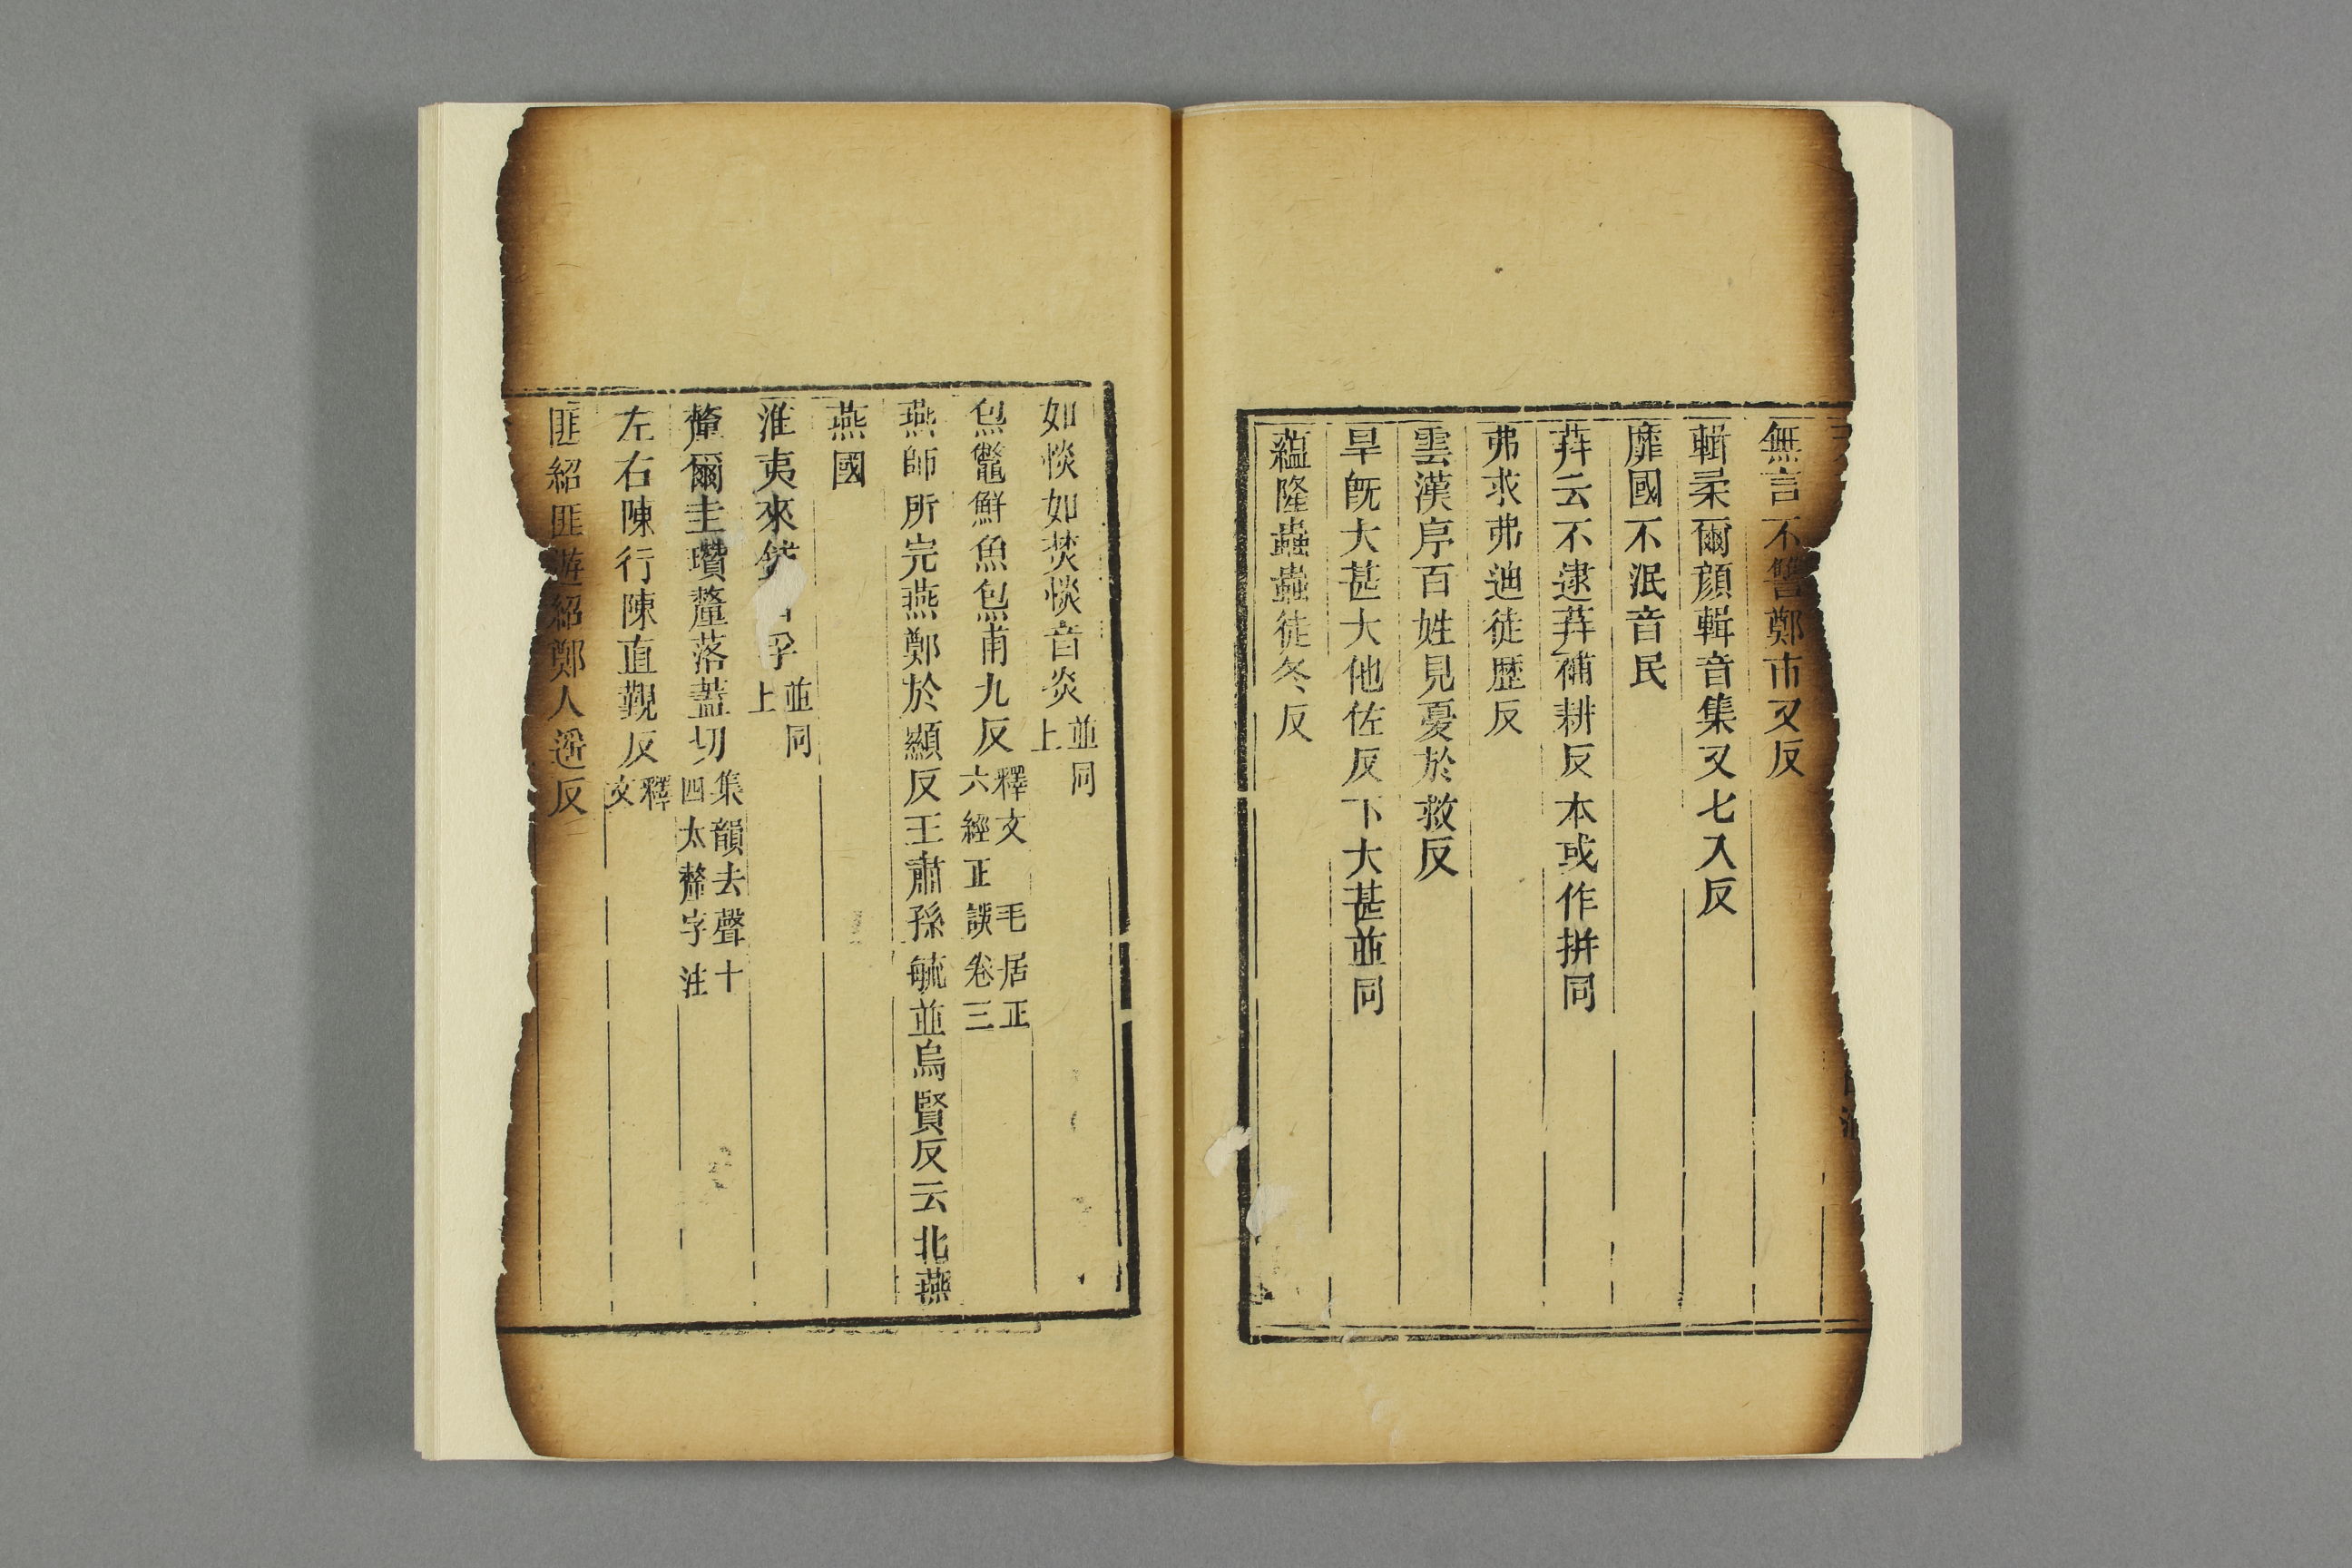 無言不讐鄭市又反
輯柔爾顔輯音集又七入反
靡國不泯音民
荓云不逮荓補耕反本或作拼同
弗求弗迪徒歷反
雲漢序百姓見憂於救反
旱旣大甚大他佐反下大甚並同
蘊隆蟲蟲徒冬反
如惔如焚惔音炎並同上
炰鼈鮮魚炰甫九反釋文 毛居正六經正誤卷三
燕師所完燕鄭於顯反王肅孫毓並烏賢反云北燕
燕國
淮夷來孚並同上
釐爾圭瓚釐落蓋切集韻去聲十四太釐字注
左右陳行陳直觀反釋文
匪紹匪遊紹鄭人遥反